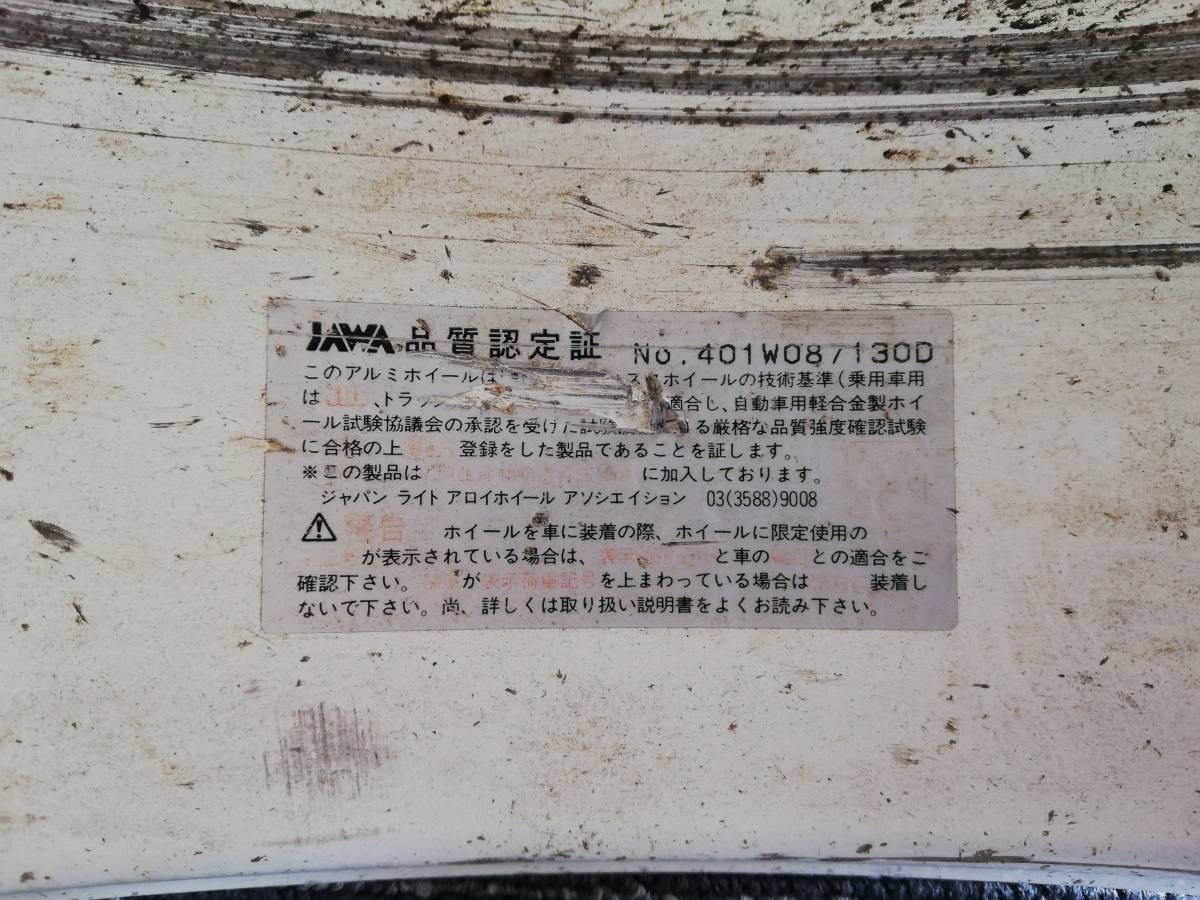 JAWA 品質認定証 No.401W087130D
このアルミホイールは ホイールの技術基準(乗用車用
は 、トラック 適合し、自動車用軽合金製ホイ
ール試験協議会の承認を受けた試験 る厳格な品質強度確認試験
に合格の上 登録をした製品であることを証します。
※この製品は に加入しております。
ジャパン ライト アロイホイール アソシエイション 03(3588)9008
警告 ホイールを車に装着の際、ホイールに限定使用の
が表示されている場合は、表示 と車の との適合をご
確認下さい。 が表示荷重記号を上まわっている場合は 装着し
ないで下さい。尚、詳しくは取り扱い説明書をよくお読み下さい。